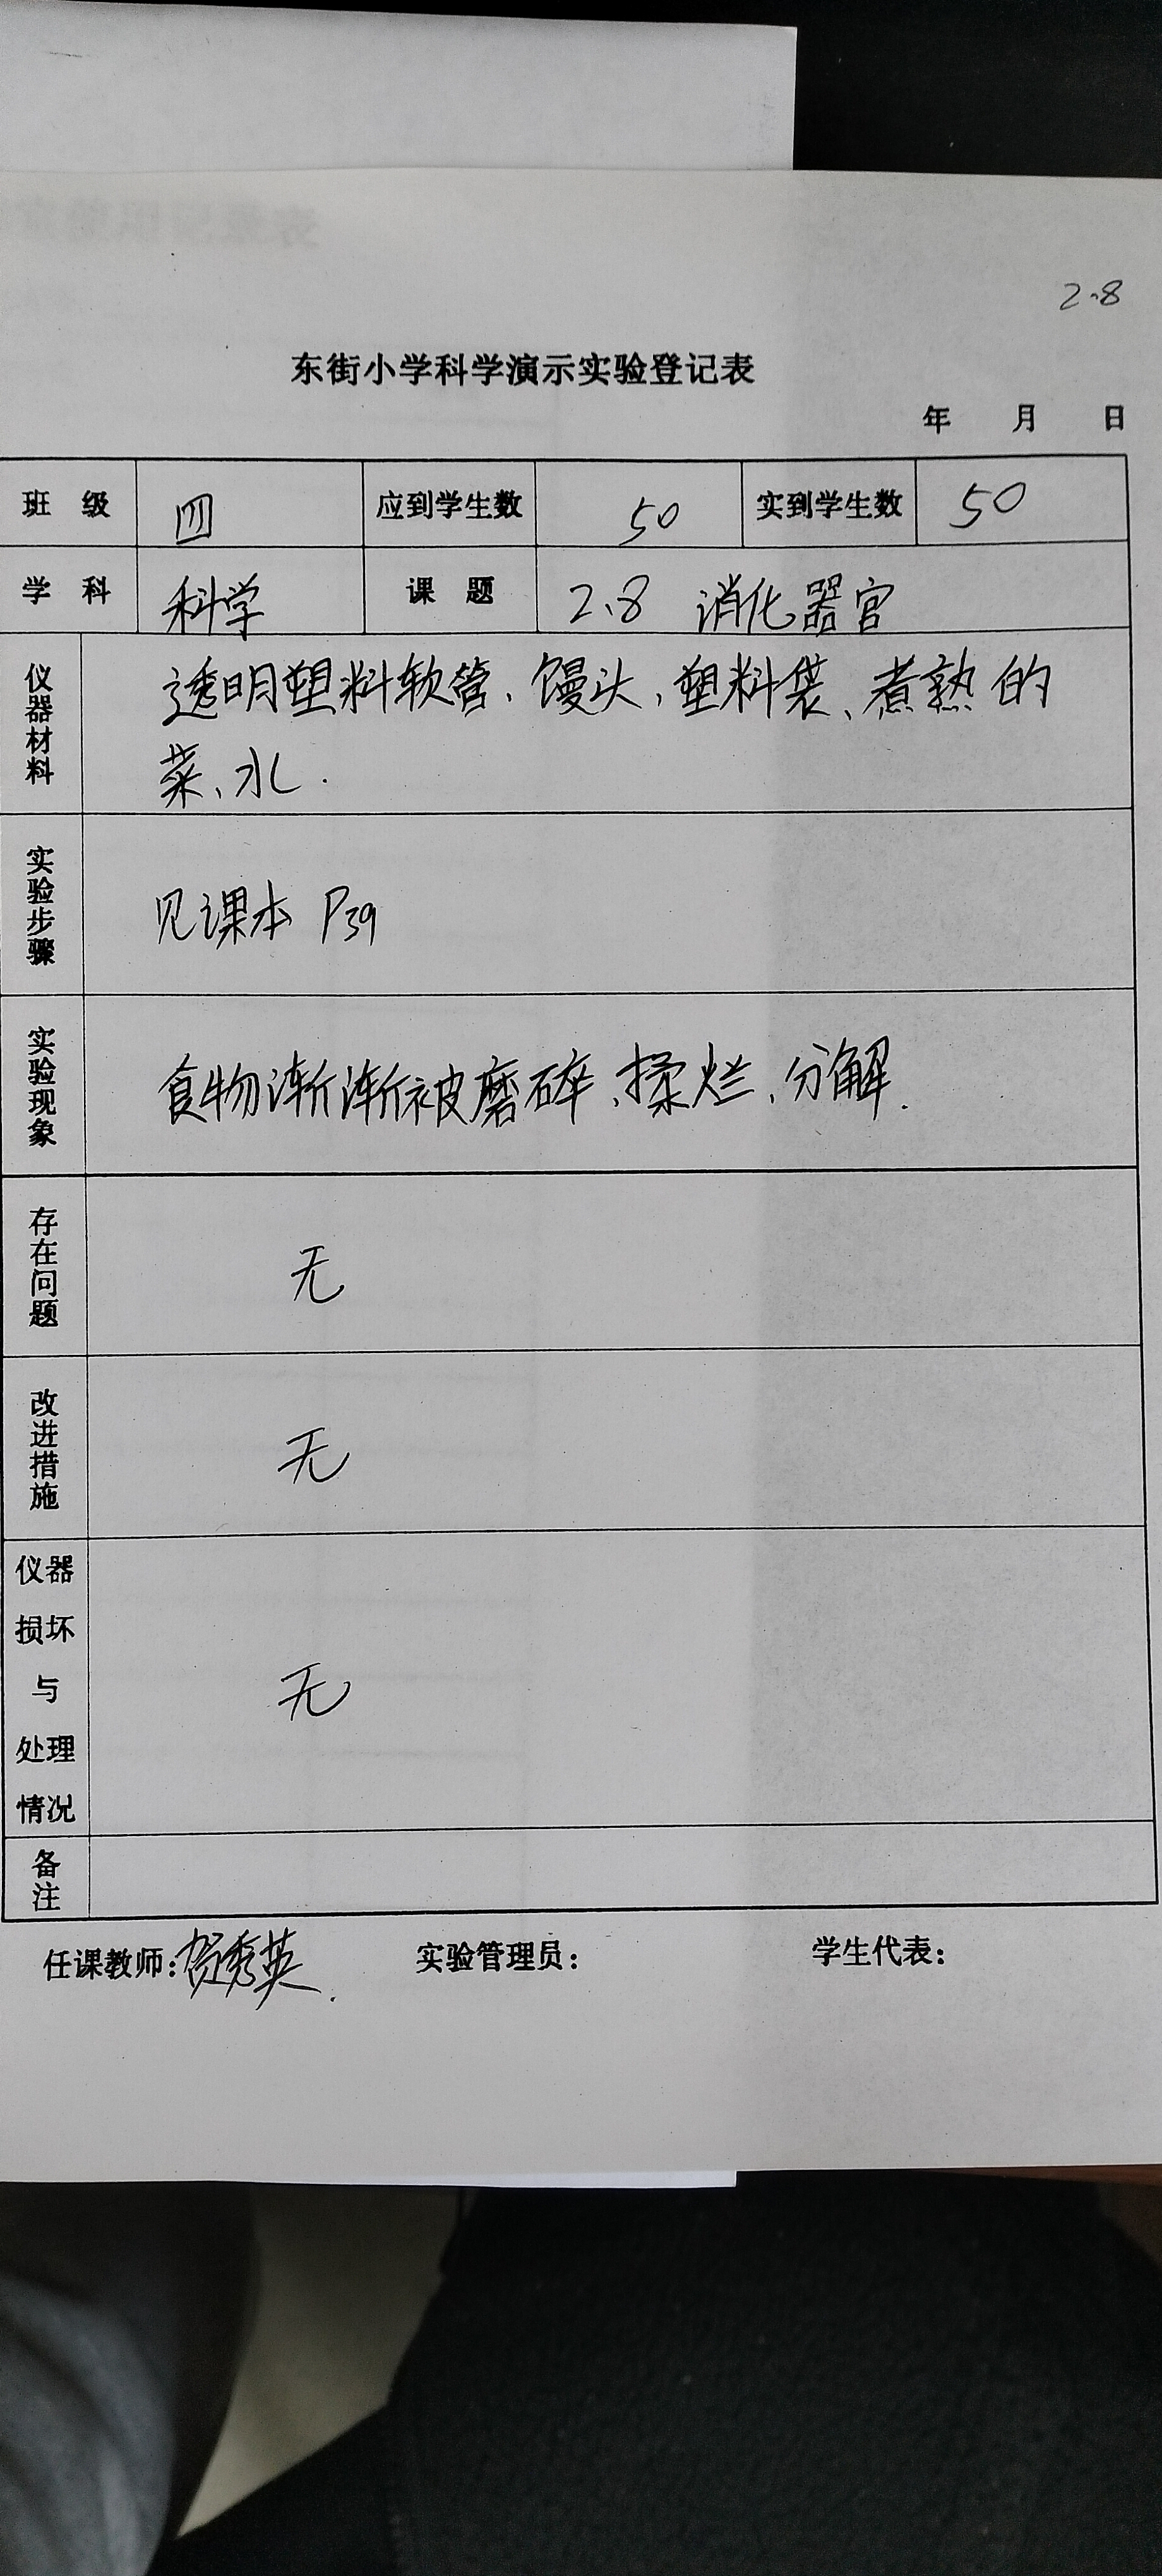 2.8
东街小学科学演示实验登记表
年 月 日
班 级 四 应到学生数 50 实到学生数 50
学 科 科学 课 题 2、8 消化器官
仪器材料 透明塑料软管、馒头、塑料袋、煮熟的
菜、水.
实验步骤 见课本 P39
实验现象 食物渐渐被磨碎、揉烂、分解.
存在问题 无
改进措施 无
仪器
损坏
与 无
处理
情况
备注
任课教师:贺秀英. 实验管理员: 学生代表: